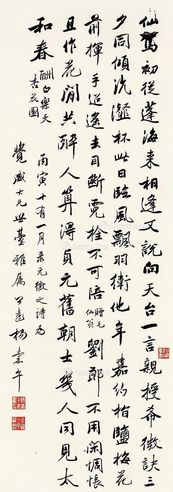 仙駕初從蓬海来相逢又說向天台一言親授希微訣三
夕同傾沆瀣杯此日臨風飄羽衛他年嘉約指鹽梅花
前揮手迢遥去目斷霓旌不可陪贈毛仙翁劉郎不用閑惆悵
且作花間共醉人算得貞元舊朝士幾人同見太
和春酬白樂天杏花園
丙寅十有一月書元微之詩為
大兄世臺雅属